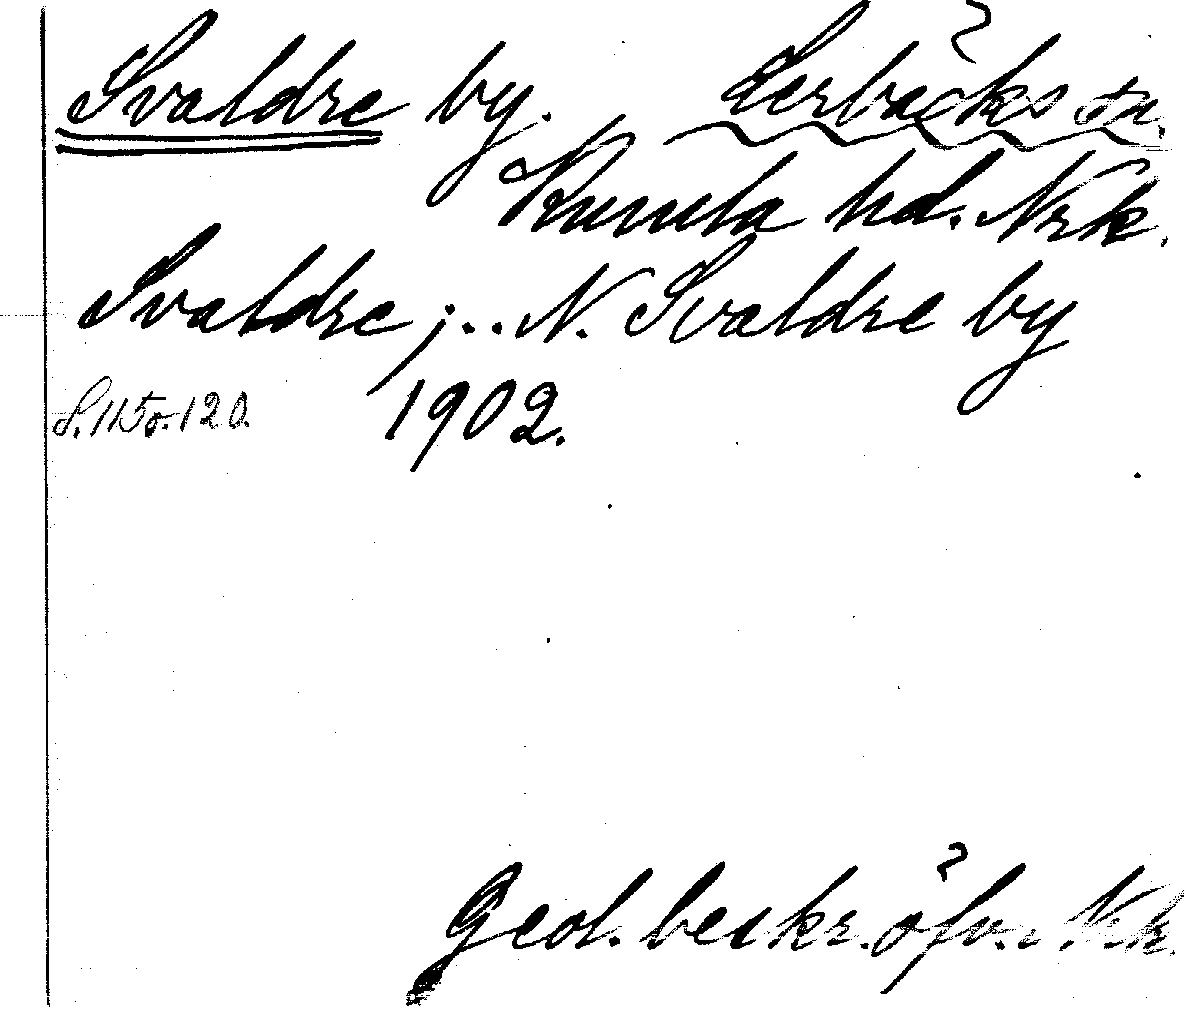 Svaldre by. Lerbäcks sn.
Kumla hd. Nrk.
Svaldre; .. N. Svaldre by
S. 115 o. 120. 1902.
Geol. beskr. öfv. Nk.